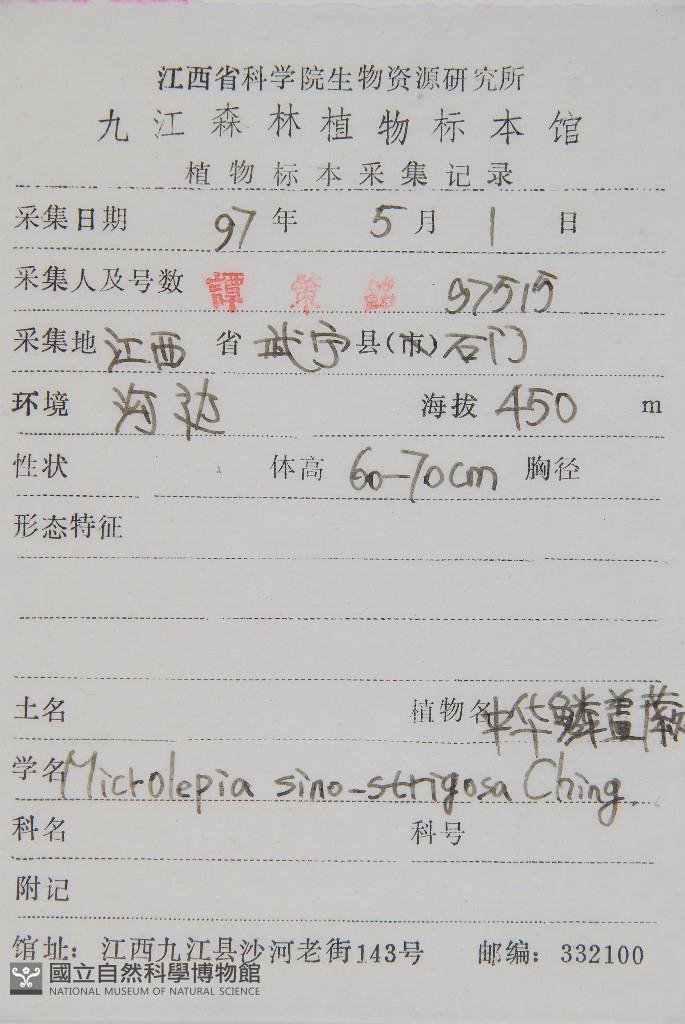 江西省科学院生物资源研究所
九江森林植物标本馆
植物标本采集记录
采集日期 97 年 5 月 1 日
采集人及号数 譚策銘 97515
采集地 江西 省 武宁 县(市) 石门
环境 河边 海拔 450 m
性状 体高 60-70cm 胸径
形态特征
土名 植物名 中华鳞盖蕨
学名 Microlepia sino-strigosa Ching.
科名 科号
附记
馆址：江西九江县沙河老街143号 邮编：332100
國立自然科學博物館
NATIONAL MUSEUM OF NATURAL SCIENCE